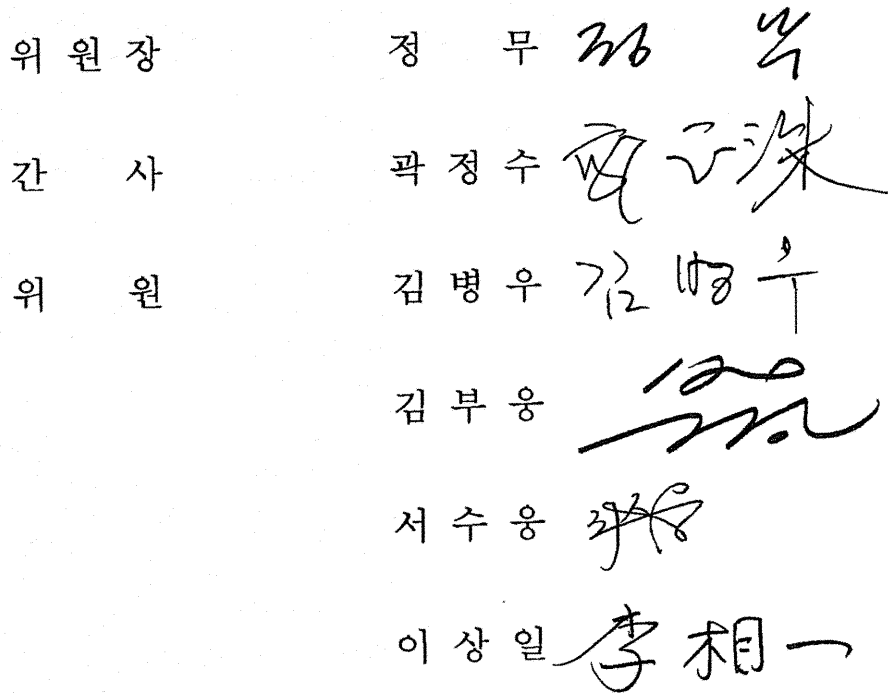 위 원 장 정 무 정 무
간 사 곽 정 수
위 원 김 병 우 김 병 우
김 부 웅
서 수 웅
이 상 일 李 相 一